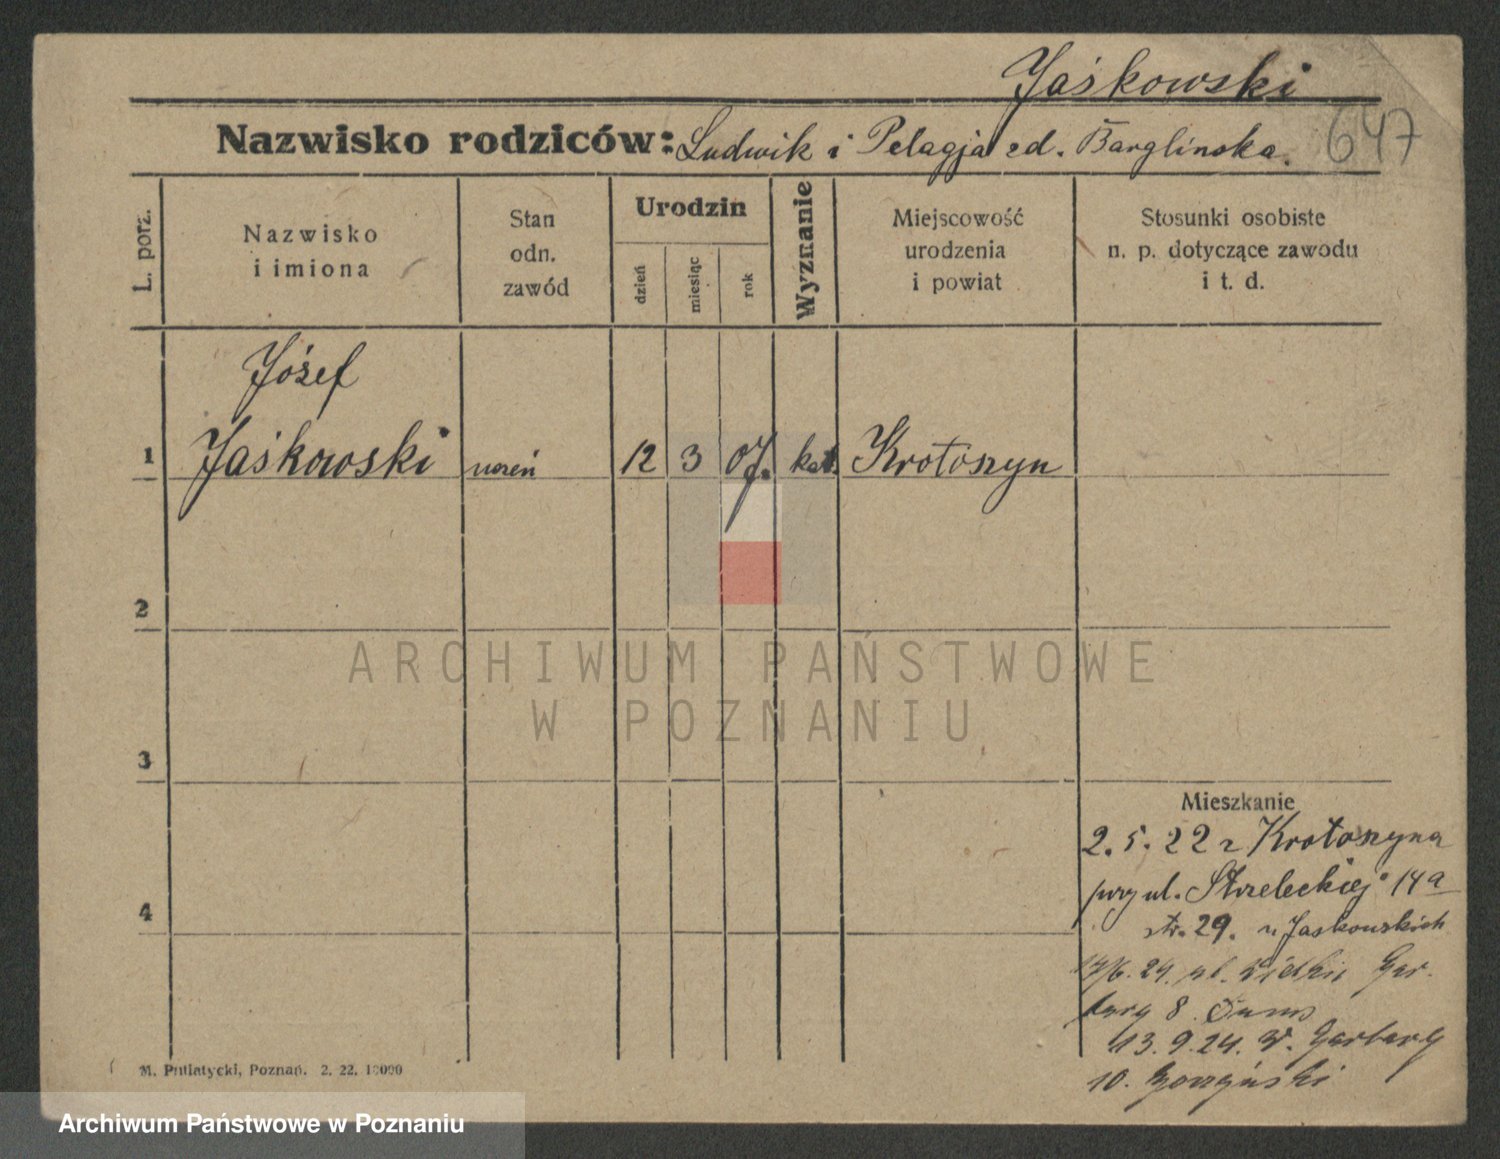 Jaśkowski
Nazwisko rodziców: Ludwik i Pelagja zd. Barglinska.
647
L. porz.
Nazwisko
i imiona
Stan
odn.
zawód
Urodzin
dzień
miesiąc
rok
Wyznanie
Miejscowość
urodzenia
i powiat
Stosunki osobiste
n. p. dotyczące zawodu
i t. d.
Józef
1 Jaśkowski uczeń 12 3 07. kat. Krotoszyn
2
ARCHIWUM PAŃSTWOWE
W POZNANIU
3
Mieszkanie
2. 5. 22 z Krotoszyna
przy ul. Strzeleckiej 14a
str. 29. u Jaskowskich
4
24. Gar-
bary 8.
13. 9. 24. W. Garbary
10.
M. Putiatycki, Poznań. 2. 22. 10000
Archiwum Państwowe w Poznaniu